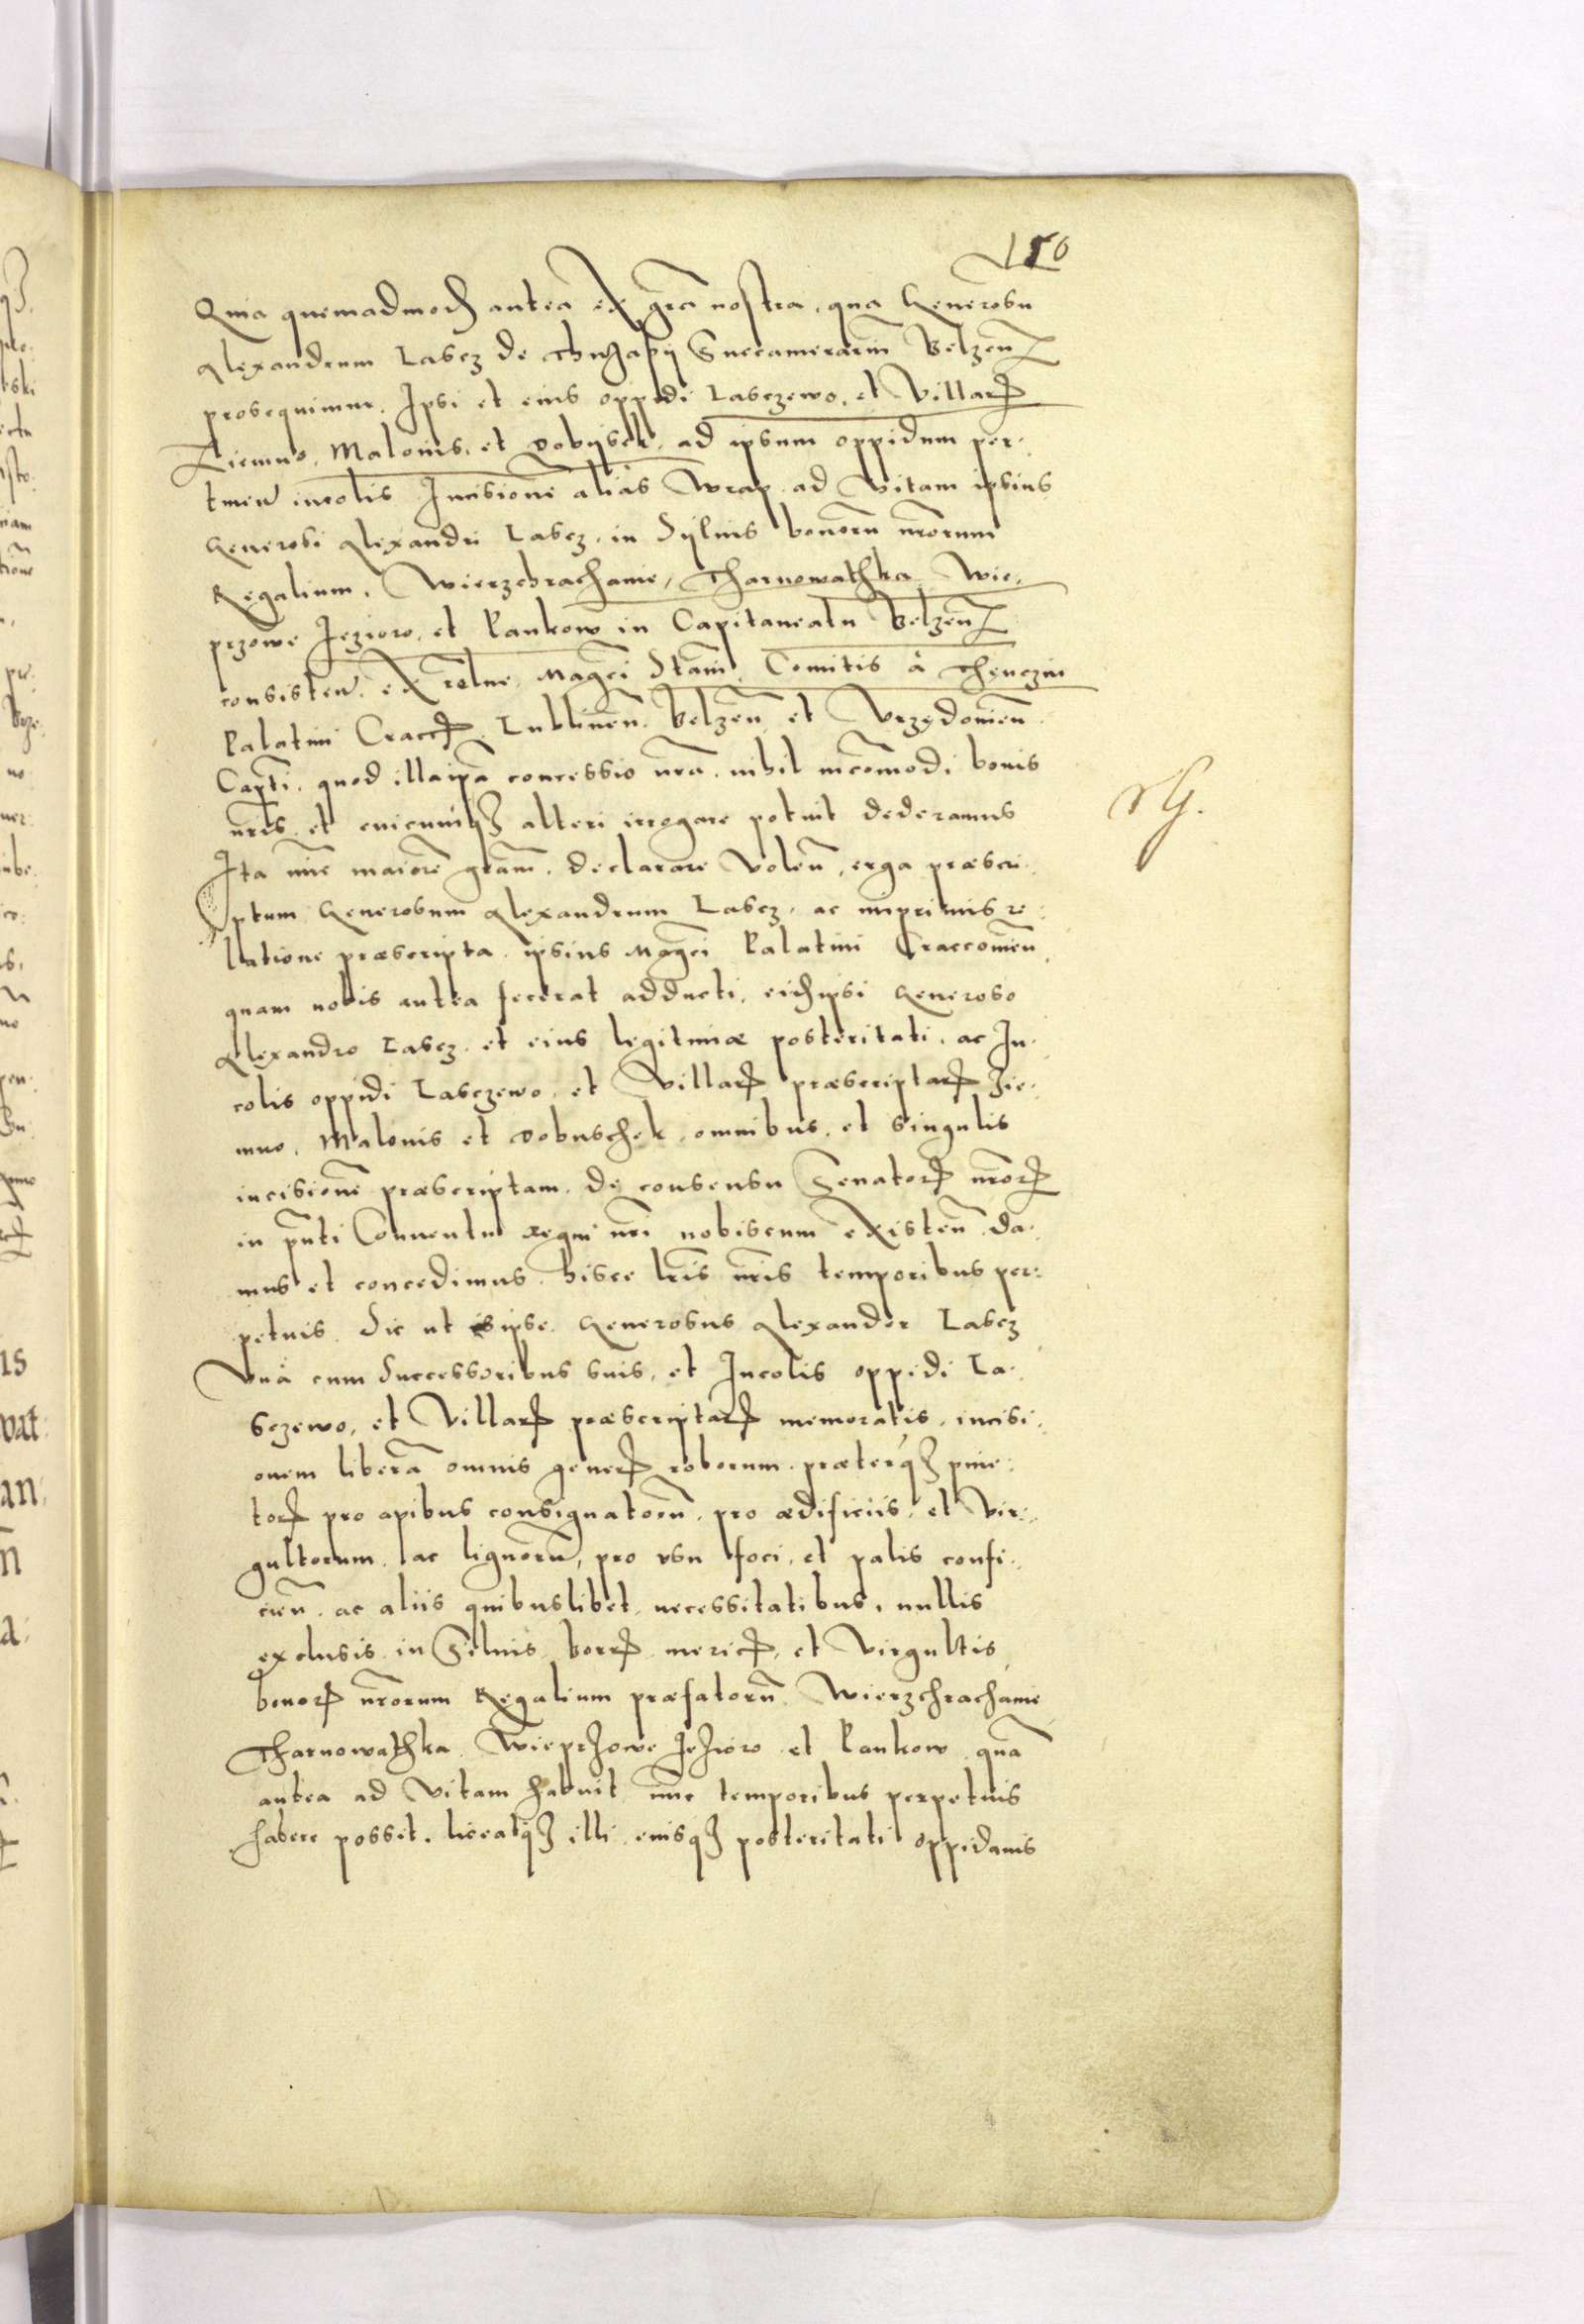 150
Quia quemadmodum antea ex gr̃a nostra, qua Generosũ
Alexandrum Lascz de Succamerariũ Belzeñ
prosequimur. Ipsi et eius oppidi Lasczewo, et Villarum
Ziemno, Malonis, et Dobijsek, ad ipsum oppidum per-
tineñ incolis Incisionẽ aliàs Wrąp ad Vitam ipsius
Generosi Alexandri Lascz, in Sylvis bonorũ nr̃orum
Regalium, Wierzchrachanie, Tharnowathka Wie-
przowe Jezioro, et Pankow in Capitaneatu Belzeñ
consisteñ, ex relñe Mag̃ci Stani. Comitis à Thenczin
Palatini Craccɜ Lublineñ. Belzeñ et Vrzędovieñ.
Capñti. quod illa ipsa concessio nr̃a nihil incõmodi bonis
nr̃is, et cuicumqɜ alteri irrogare potuit dederamus
Ita nũc maiorẽ gr̃am declarare Voleñ, erga præscri-
ptum Generosum Alexandrum Lascz, ac inprimis re-
latione præscripta ipsius Mag̃ci Palatini Craccovieñ,
quam nobis antea fecerat adducti, eidẽ ipsi Generoso
Alexandro Lascz et eius legitimæ posteritati, ac In-
colis oppidi Lasczewo, et Villarum præscriptarum Zie-
mno, Malonis et Dobuschek, omnibus, et singulis
incisionẽ præscriptam, de consensu Senatorum nr̃orum
in pñti Conventu regni nr̃i nobiscum existeñ da-
mus et concedimus hisce lr̃is nr̃is temporibus per-
petuis. Sic ut ipse Generosus Alexander Lascz
Vnà cum Successoribus suis, et Incolis oppidi La-
sczewo, et Villarum præscriptarum memoratis, incisi-
onem liberã omnis generis roborum præterqɜ pine-
torum pro apibus consignatorũ, pro ædificiis, et Vir-
gultorum ac lignorũ, pro vsu foci, et palis confi-
cieñ. ac aliis quibuslibet necessitatibus, nullis
exclusis in Silvis, borris mericis, et Virgultis
bonorum nr̃orum Regalium præfatorũ Wierzchrachanie
Tharnowathka, Wieprzowe Jezioro et Pankow, quã
antea ad Vitam habuit nũc temporibus perpetuis
habere possit. liceatqɜ illi eiusqɜ posteritati oppidanis